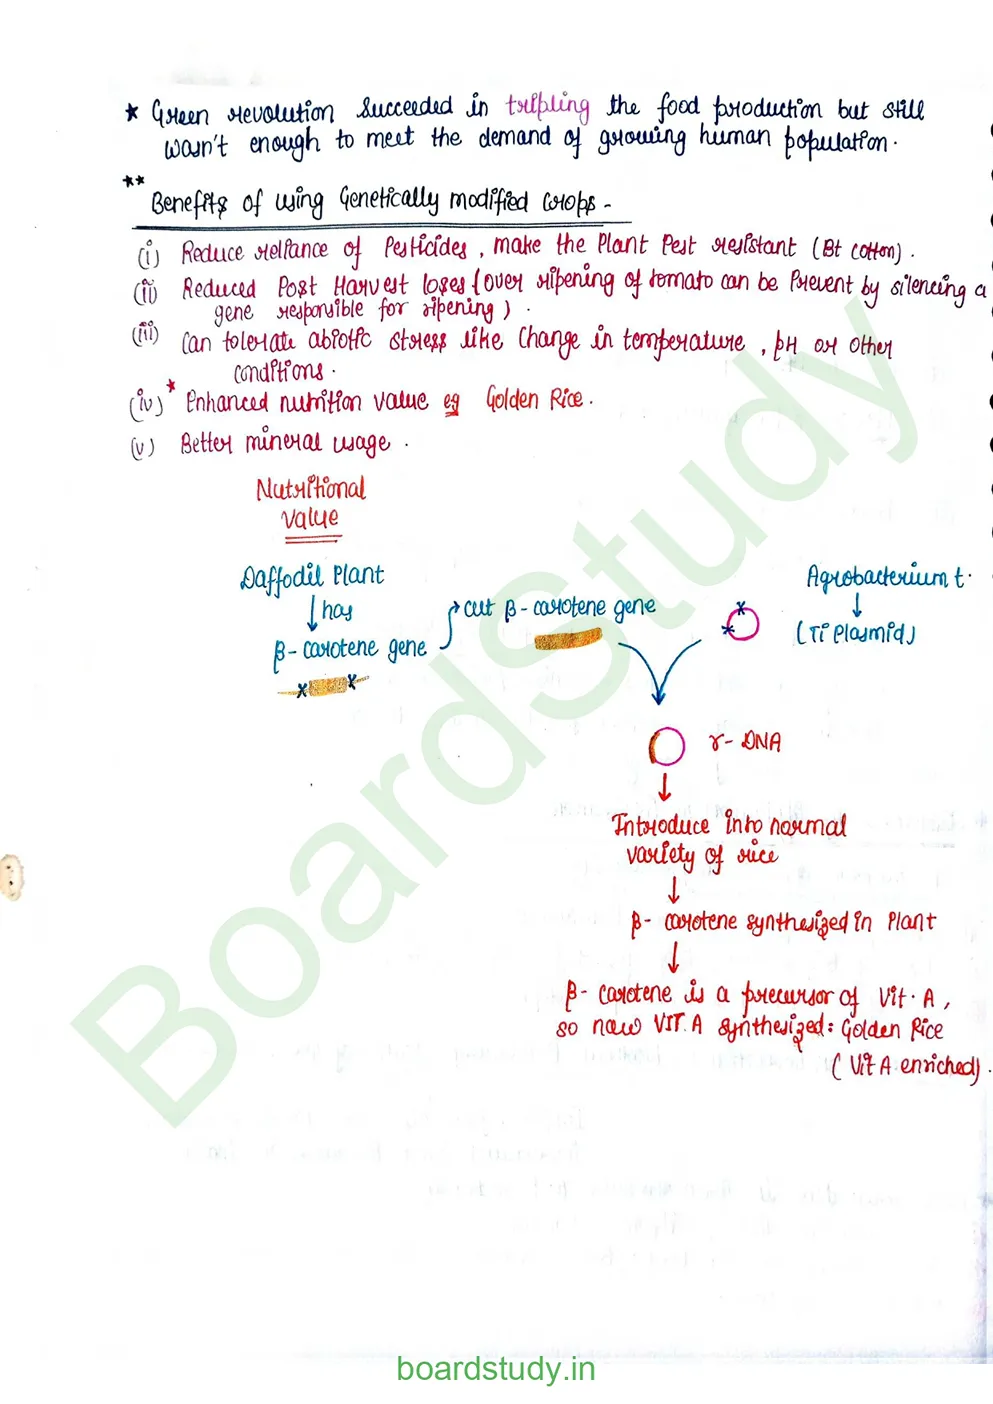 ★ Green revolution succeeded in tripling the food production but still
wasn't enough to meet the demand of growing human population.
★★
Benefits of using Genetically modified crops -
(i) Reduce reliance of Pesticides, make the Plant Pest resistant (Bt cotton).
(ii) Reduced Post Harvest loses (over ripening of tomato can be Prevent by silencing a
gene responsible for ripening).
(iii) Can tolerate abiotic stress like Change in temperature, pH or other
conditions.
(iv)★ Enhanced nutrition value eg Golden Rice.
(v) Better mineral usage.
Nutritional
Value
Daffodil Plant
↓ has
β-carotene gene
cut β-carotene gene
Agrobacterium t.
↓
(Ti Plasmid)
r-DNA
↓
Introduce into normal
variety of rice
↓
β-carotene synthesized in Plant
↓
β-carotene is a precursor of Vit. A,
so now VIT. A synthesized: Golden Rice
(Vit A enriched).
BoardStudy
boardstudy.in